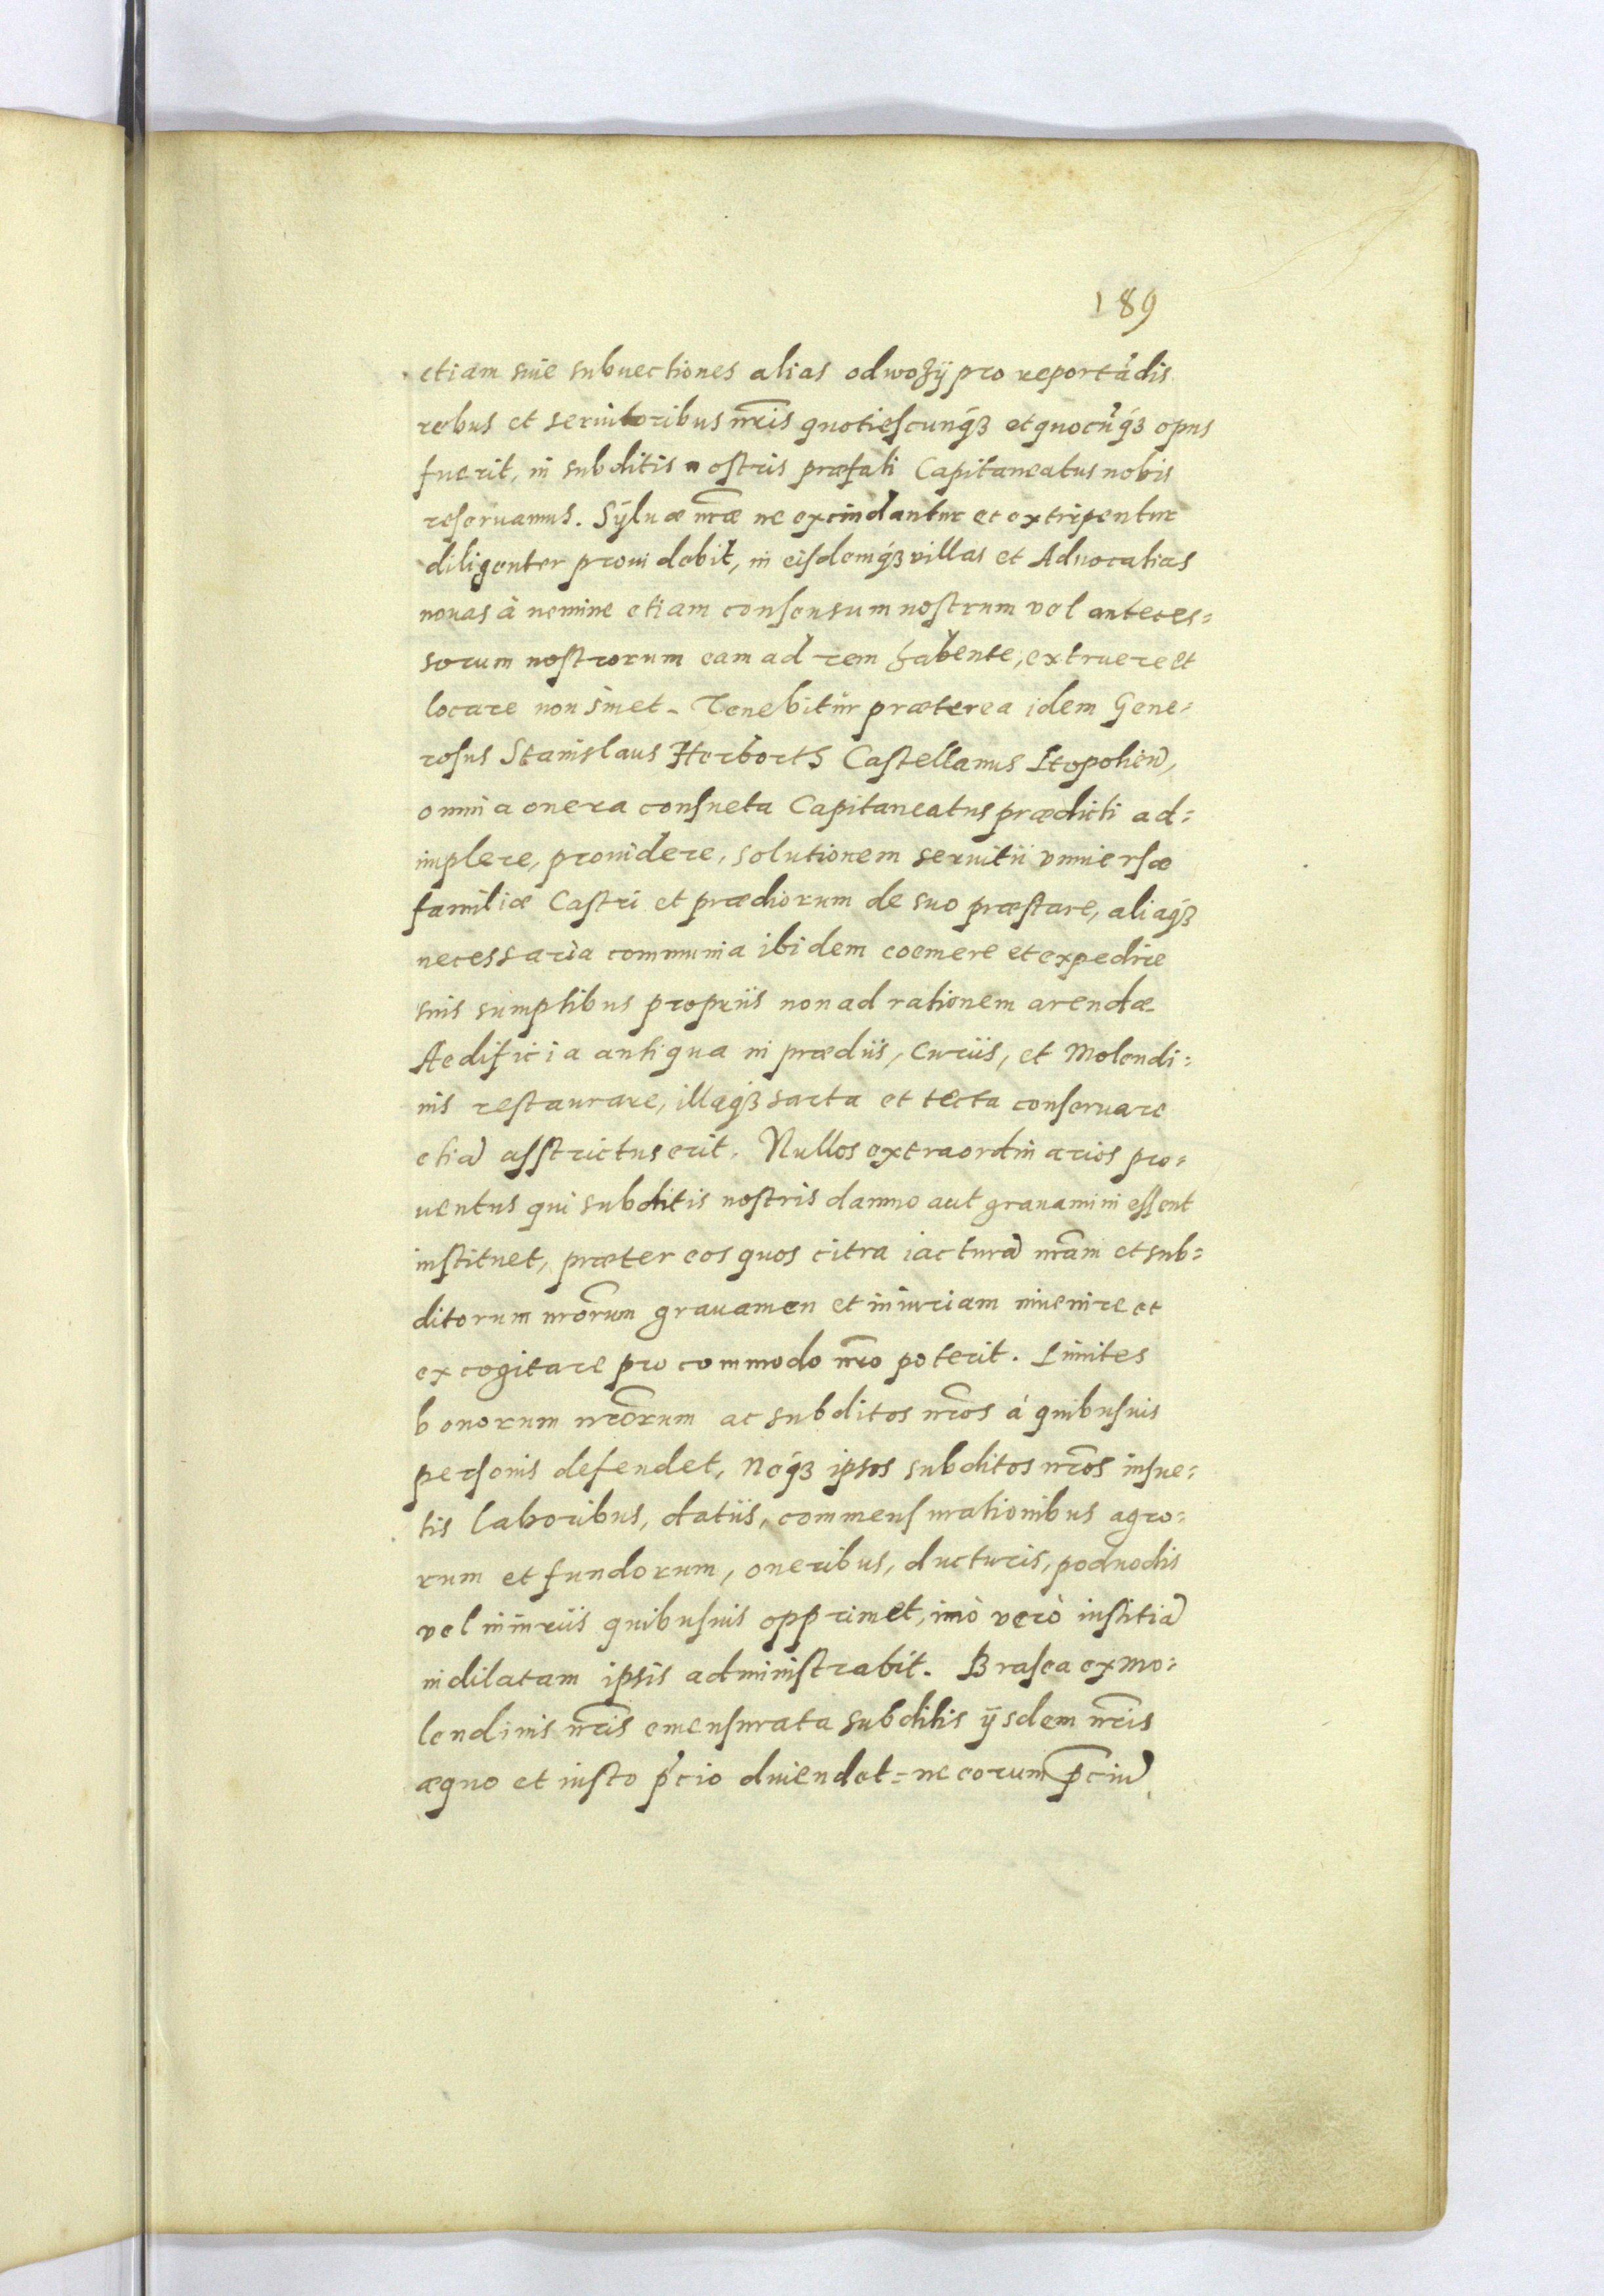 189
etiam siue subuectiones alias odwozÿ pro reportãdis
rebus et seruitoribus nr̃is quotiescunq́ꝫ et quocũq́ꝫ opus
fuerit, in subditis nostris præfati Capitaneatus nobis
reseruamus. Sÿluæ nr̃æ ne excindantur et extirpentur
diligenter prouidebit, in eisdemq́ꝫ villas et Aduocatias
nouas à nemine etiam consensum nostrum vel anteces=
sorum nostrorum eam ad rem habente, extruere et
locare non sinet. Tenebitur præterea idem Gene=
rosus Stanislaus Herborth Castellanus Leopolien̄,
omnia onera consueta Capitaneatus prædicti ad=
implere, prouidere, solutionem seruitii vniuersæ
familiæ Castri et prædiorum de suo præstare, aliaq́ꝫ
necessaria communia ibidem coemere et expedire
suis sumptibus propriis non ad rationem arendæ.
Aedificia antiqua in prædiis, Curiis, et Molendi=
nis restaurare, illaq́ꝫ sarta et tecta conseruare
etiã asstrictus erit. Nullos extraordinarios pro=
uentus qui subditis nostris damno aut grauamini essent
instituet, præter eos quos citra iacturã nr̃am et sub=
ditorum nr̃orum grauamen et iniuriam inuenire et
excogitare pro commodo nr̃o poterit. Limites
bonorum nr̃orum ac subditos nr̃os á quibusuis
personis defendet, Neq́ꝫ ipsos subditos nr̃os insue=
tis laboribus, datiis, commensurationibus agro=
rum et fundorum, oneribus, ducturis, poduodis
vel iniuriis quibusuis opprimet, imò verò iustitiã
indilatam ipsis administrabit. Brasea ex mo=
lendinis nr̃is emensurata subditis ÿsdem nr̃is
æquo et iusto p̃cio diuendet= ne eorum p̃ciũ